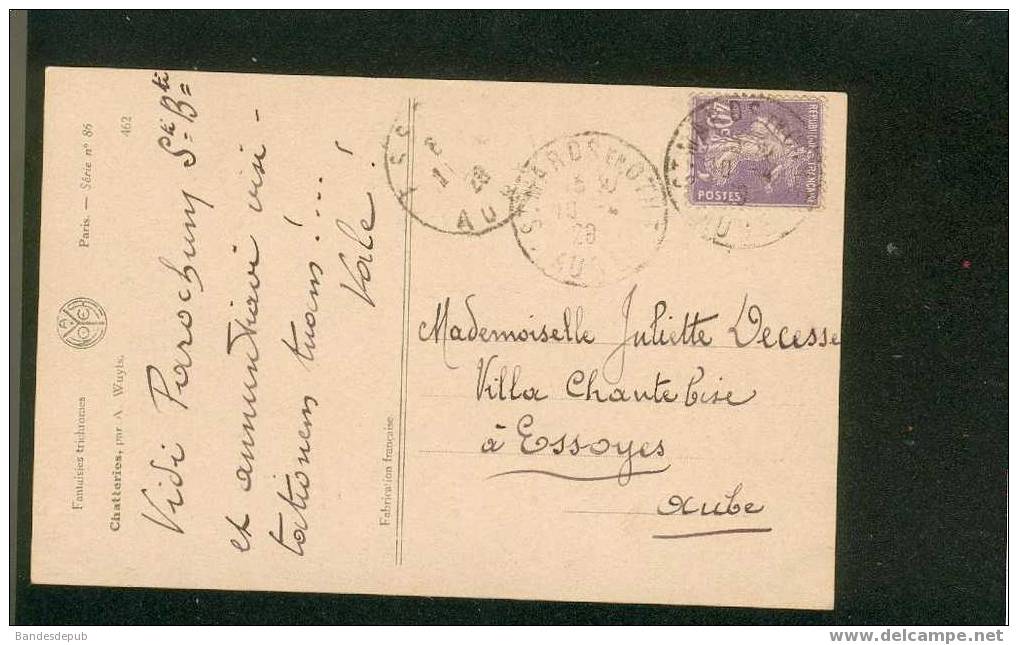 Fantaisies trichromes
Paris. — Série nº 86
Chatteries, par A. Wuyts.
462
Vidi Parochum Sti Bti
et annuntiavi visi-
tationem tuam!...
Vale!
Fabrication française
Mademoiselle Juliette Decesse
Villa Chantebise
à Essoyes
Aube
40c
REPUBLIQUE FRANÇAISE
POSTES
AUBE
Bandesdepub
www.delcampe.net